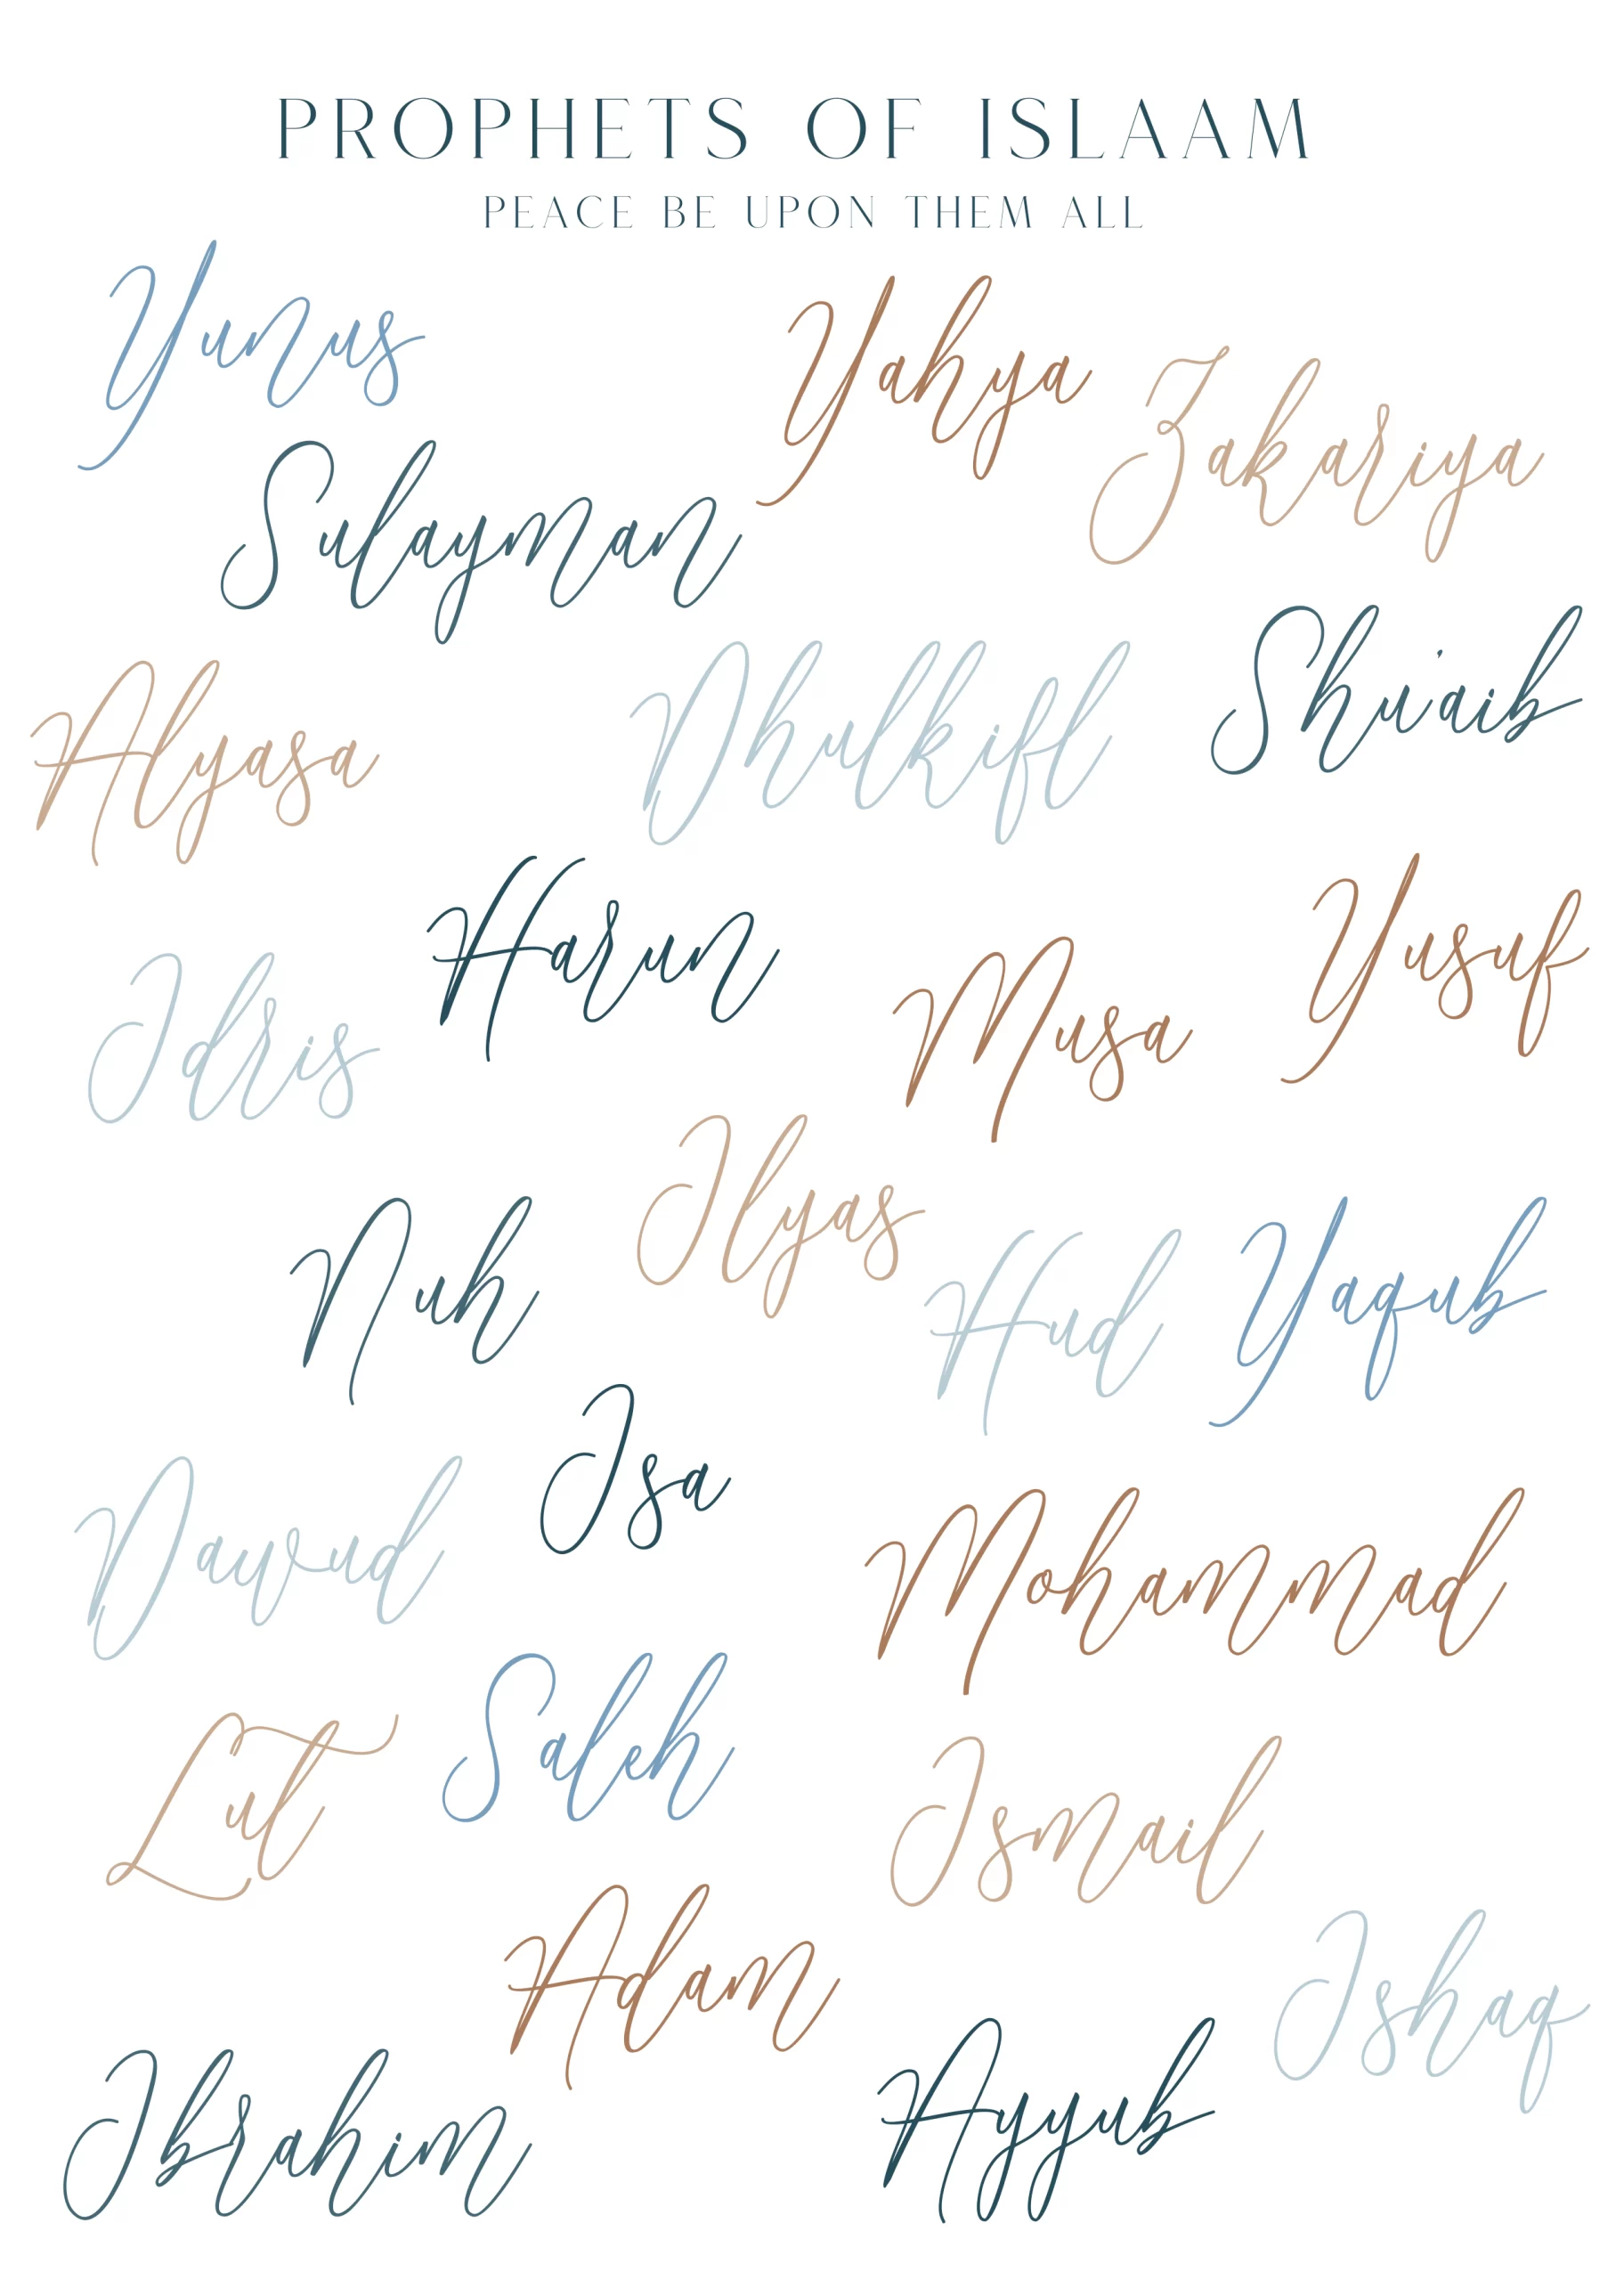 PROPHETS OF ISLAAM
PEACE BE UPON THEM ALL
Yunus
Yahya
Zakariya
Sulayman
Shu'aib
Alyasa
Dhulkifl
Harun
Yusuf
Idris
Musa
Ilyas
Nuh
Hud
Yaqub
Isa
Dawud
Mohammad
Saleh
Lut
Ismail
Adam
Ishaq
Ibrahim
Ayyub